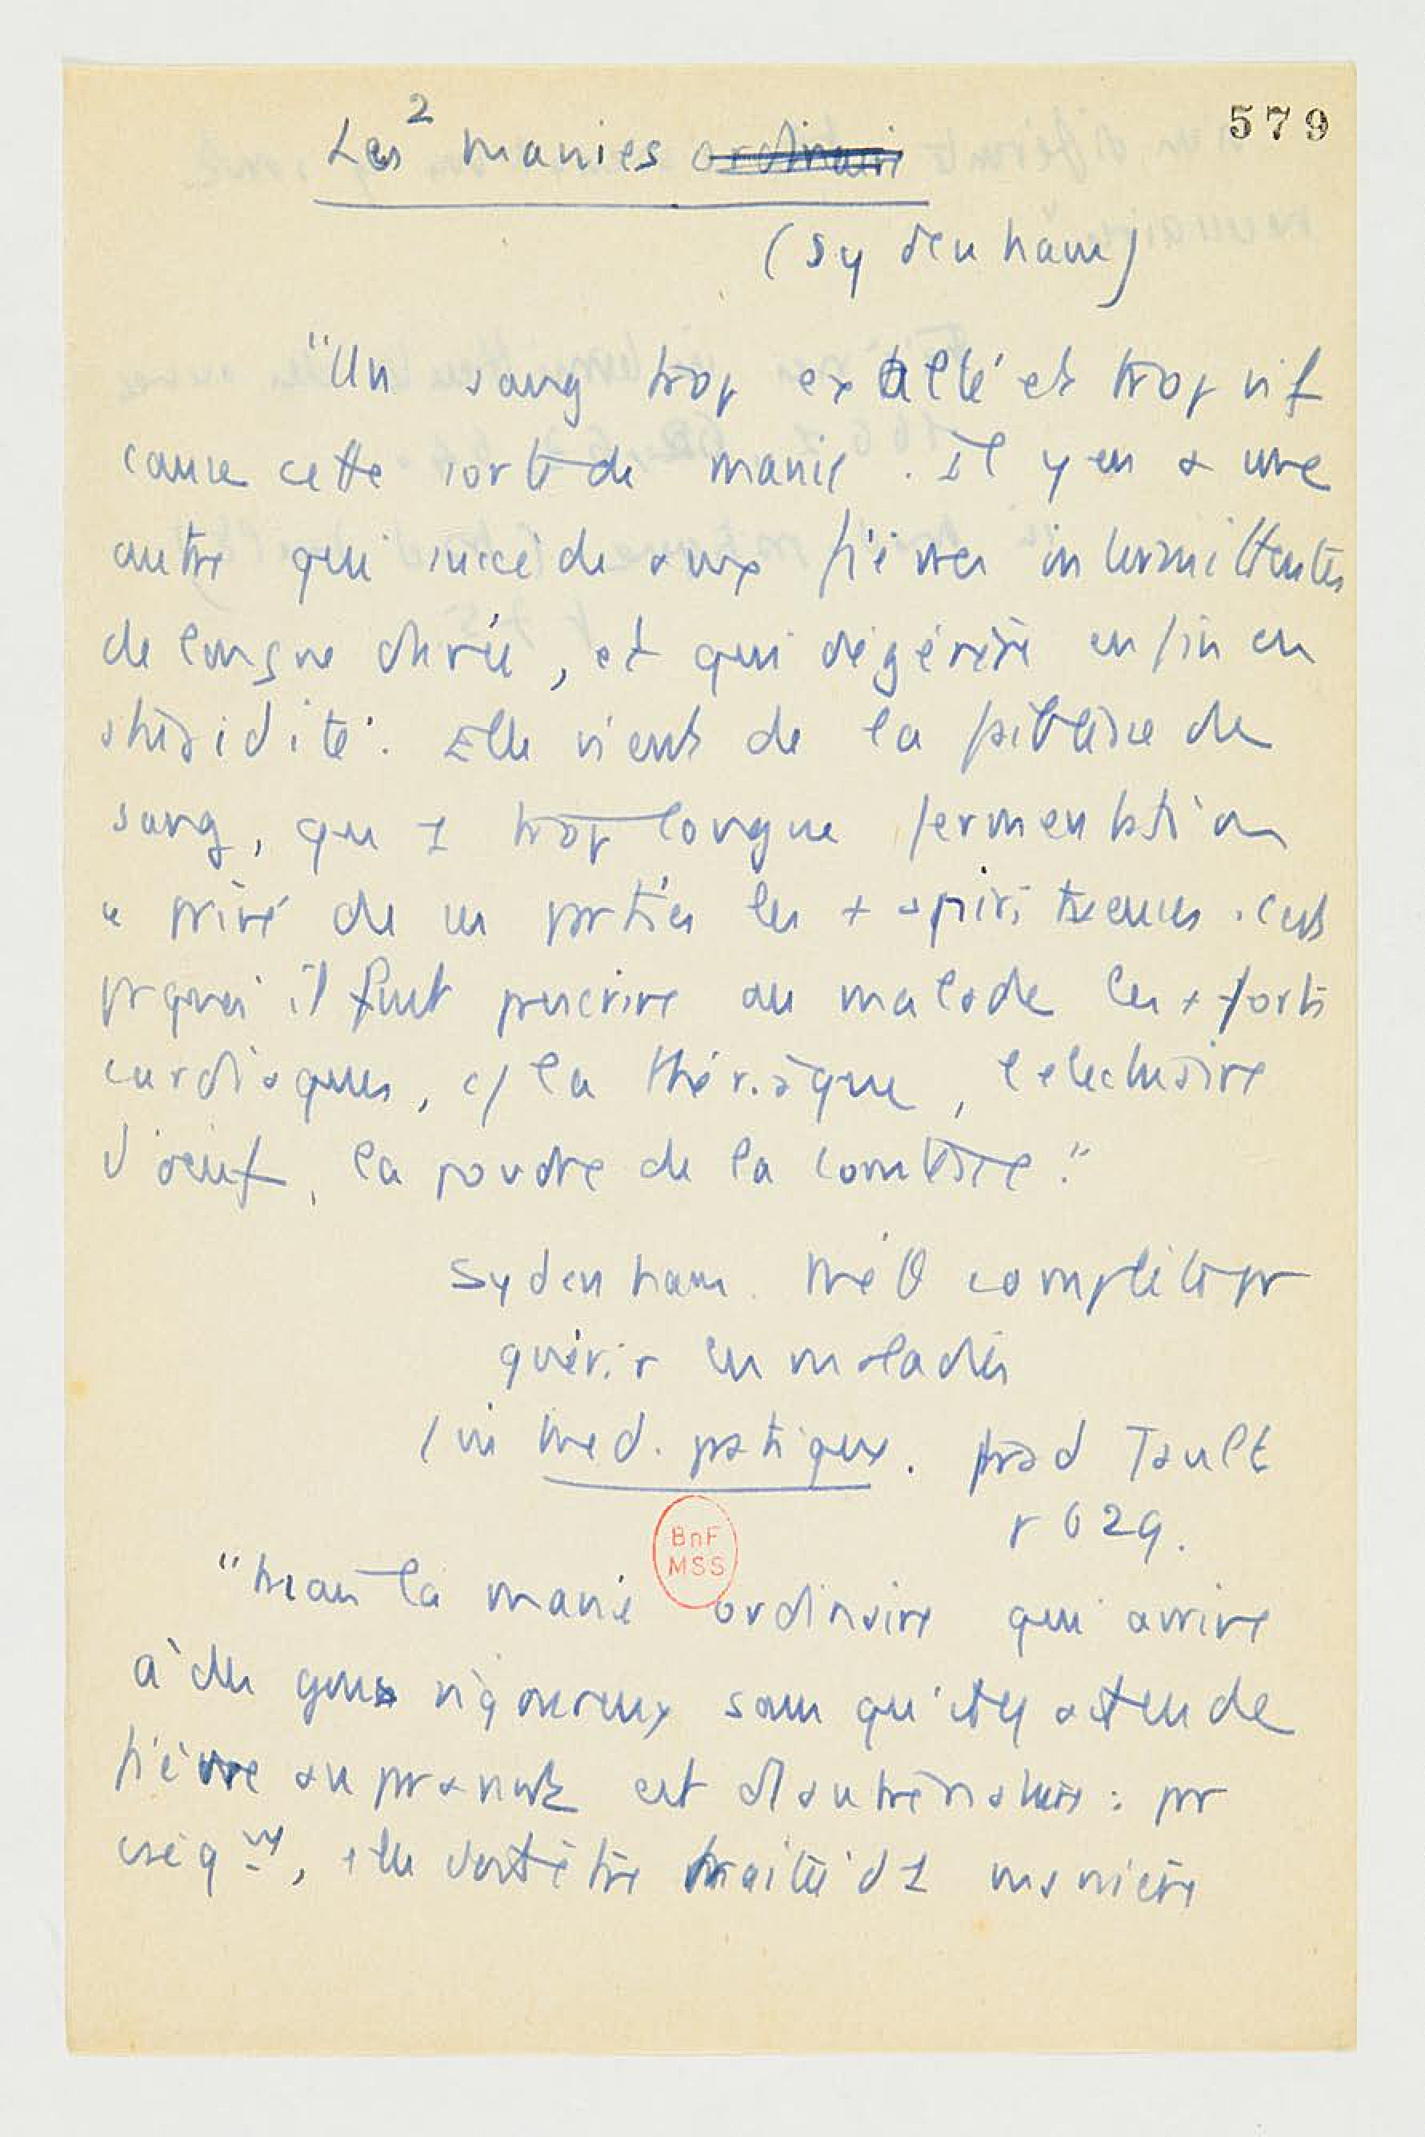 579
Les 2 manies ordinaire
(Sydenham)
"Un sang trop exalté et trop vif
cause cette sorte de manie. Il y en a une
autre qui succède aux fièvres intermittentes
de longue durée, et qui dégénère enfin en
stupidité. Elle vient de la faiblesse du
sang, qu 1 trop longue fermentation
a privé de ses parties les + spiritueuses. C'est
pr quoi il faut prescrire au malade les + forts
cardiaques, c/ la thériaque, l'électuaire
d'oeuf, la poudre de la comtesse."
Sydenham. Méth complète pr
guérir les maladies
(in Med. pratique. trad Jault
p 629.
"Mais la manie ordinaire qui arrive
à des gens vigoureux sans qu'il y ait eu de
fièvre auparavant est d'autre nature : pr
cséqt, elle doit être traitée d 1 manière
BnF
MSS